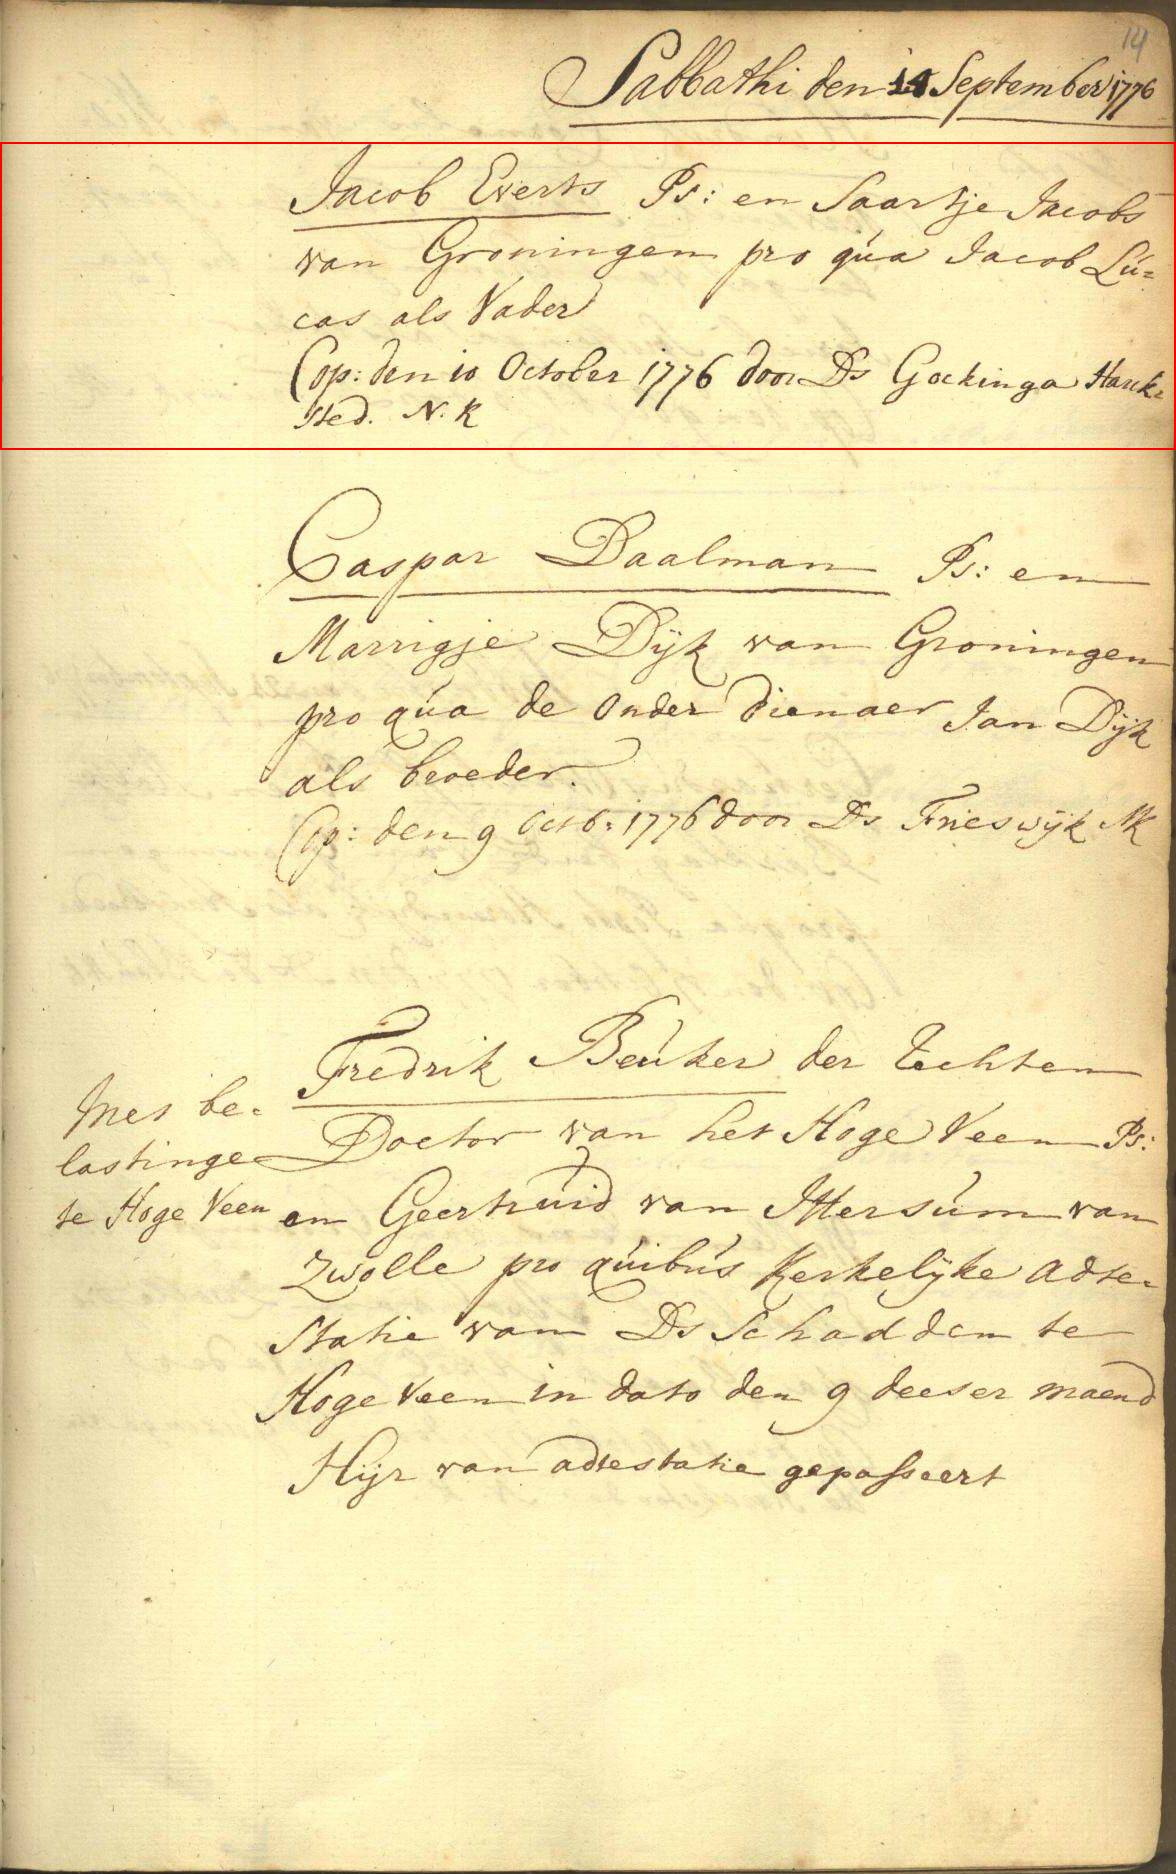 14
Sabbathi den 14 September 1776
Jacob Everts Ps: en Saartje Jacobs
van Groningen pro qúa Jacob Lú=
cas als Vader
Cop: den 10 October 1776 door Ds Gockinga Hark=
sted. N. K
Caspar Daalman Ps: en
Marrigje Dijk van Groningen
pro qúa de Onder dienaer Jan Dijk
als broeder.
Cop: den 9 Octb: 1776 door Ds Frieswijk NK
Fredrik Beúker der Rechten
Doctor van het Hoge Veen Ps:
en Geertrúid van Ittersúm van
Zwolle pro qúibús Kerkelijke adte=
statie van Ds Schadden te
Hoge Veen in dato den 9 deeser maend
Hijr van adtestatie gepasseert
Met be=
lastinge
te Hoge Veen